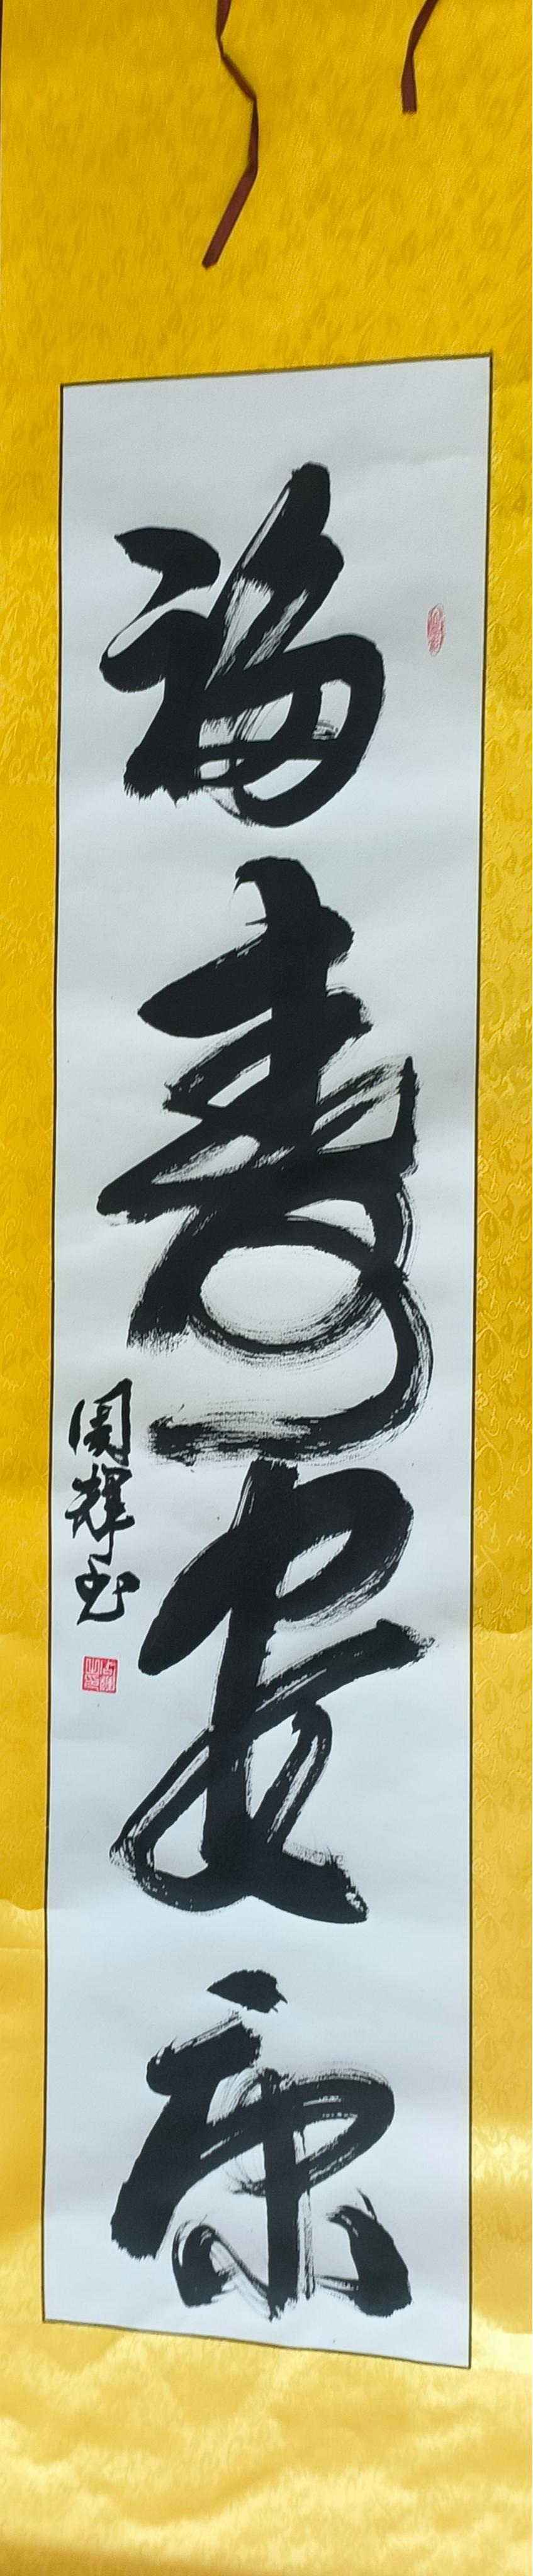 福寿安康
国辉书